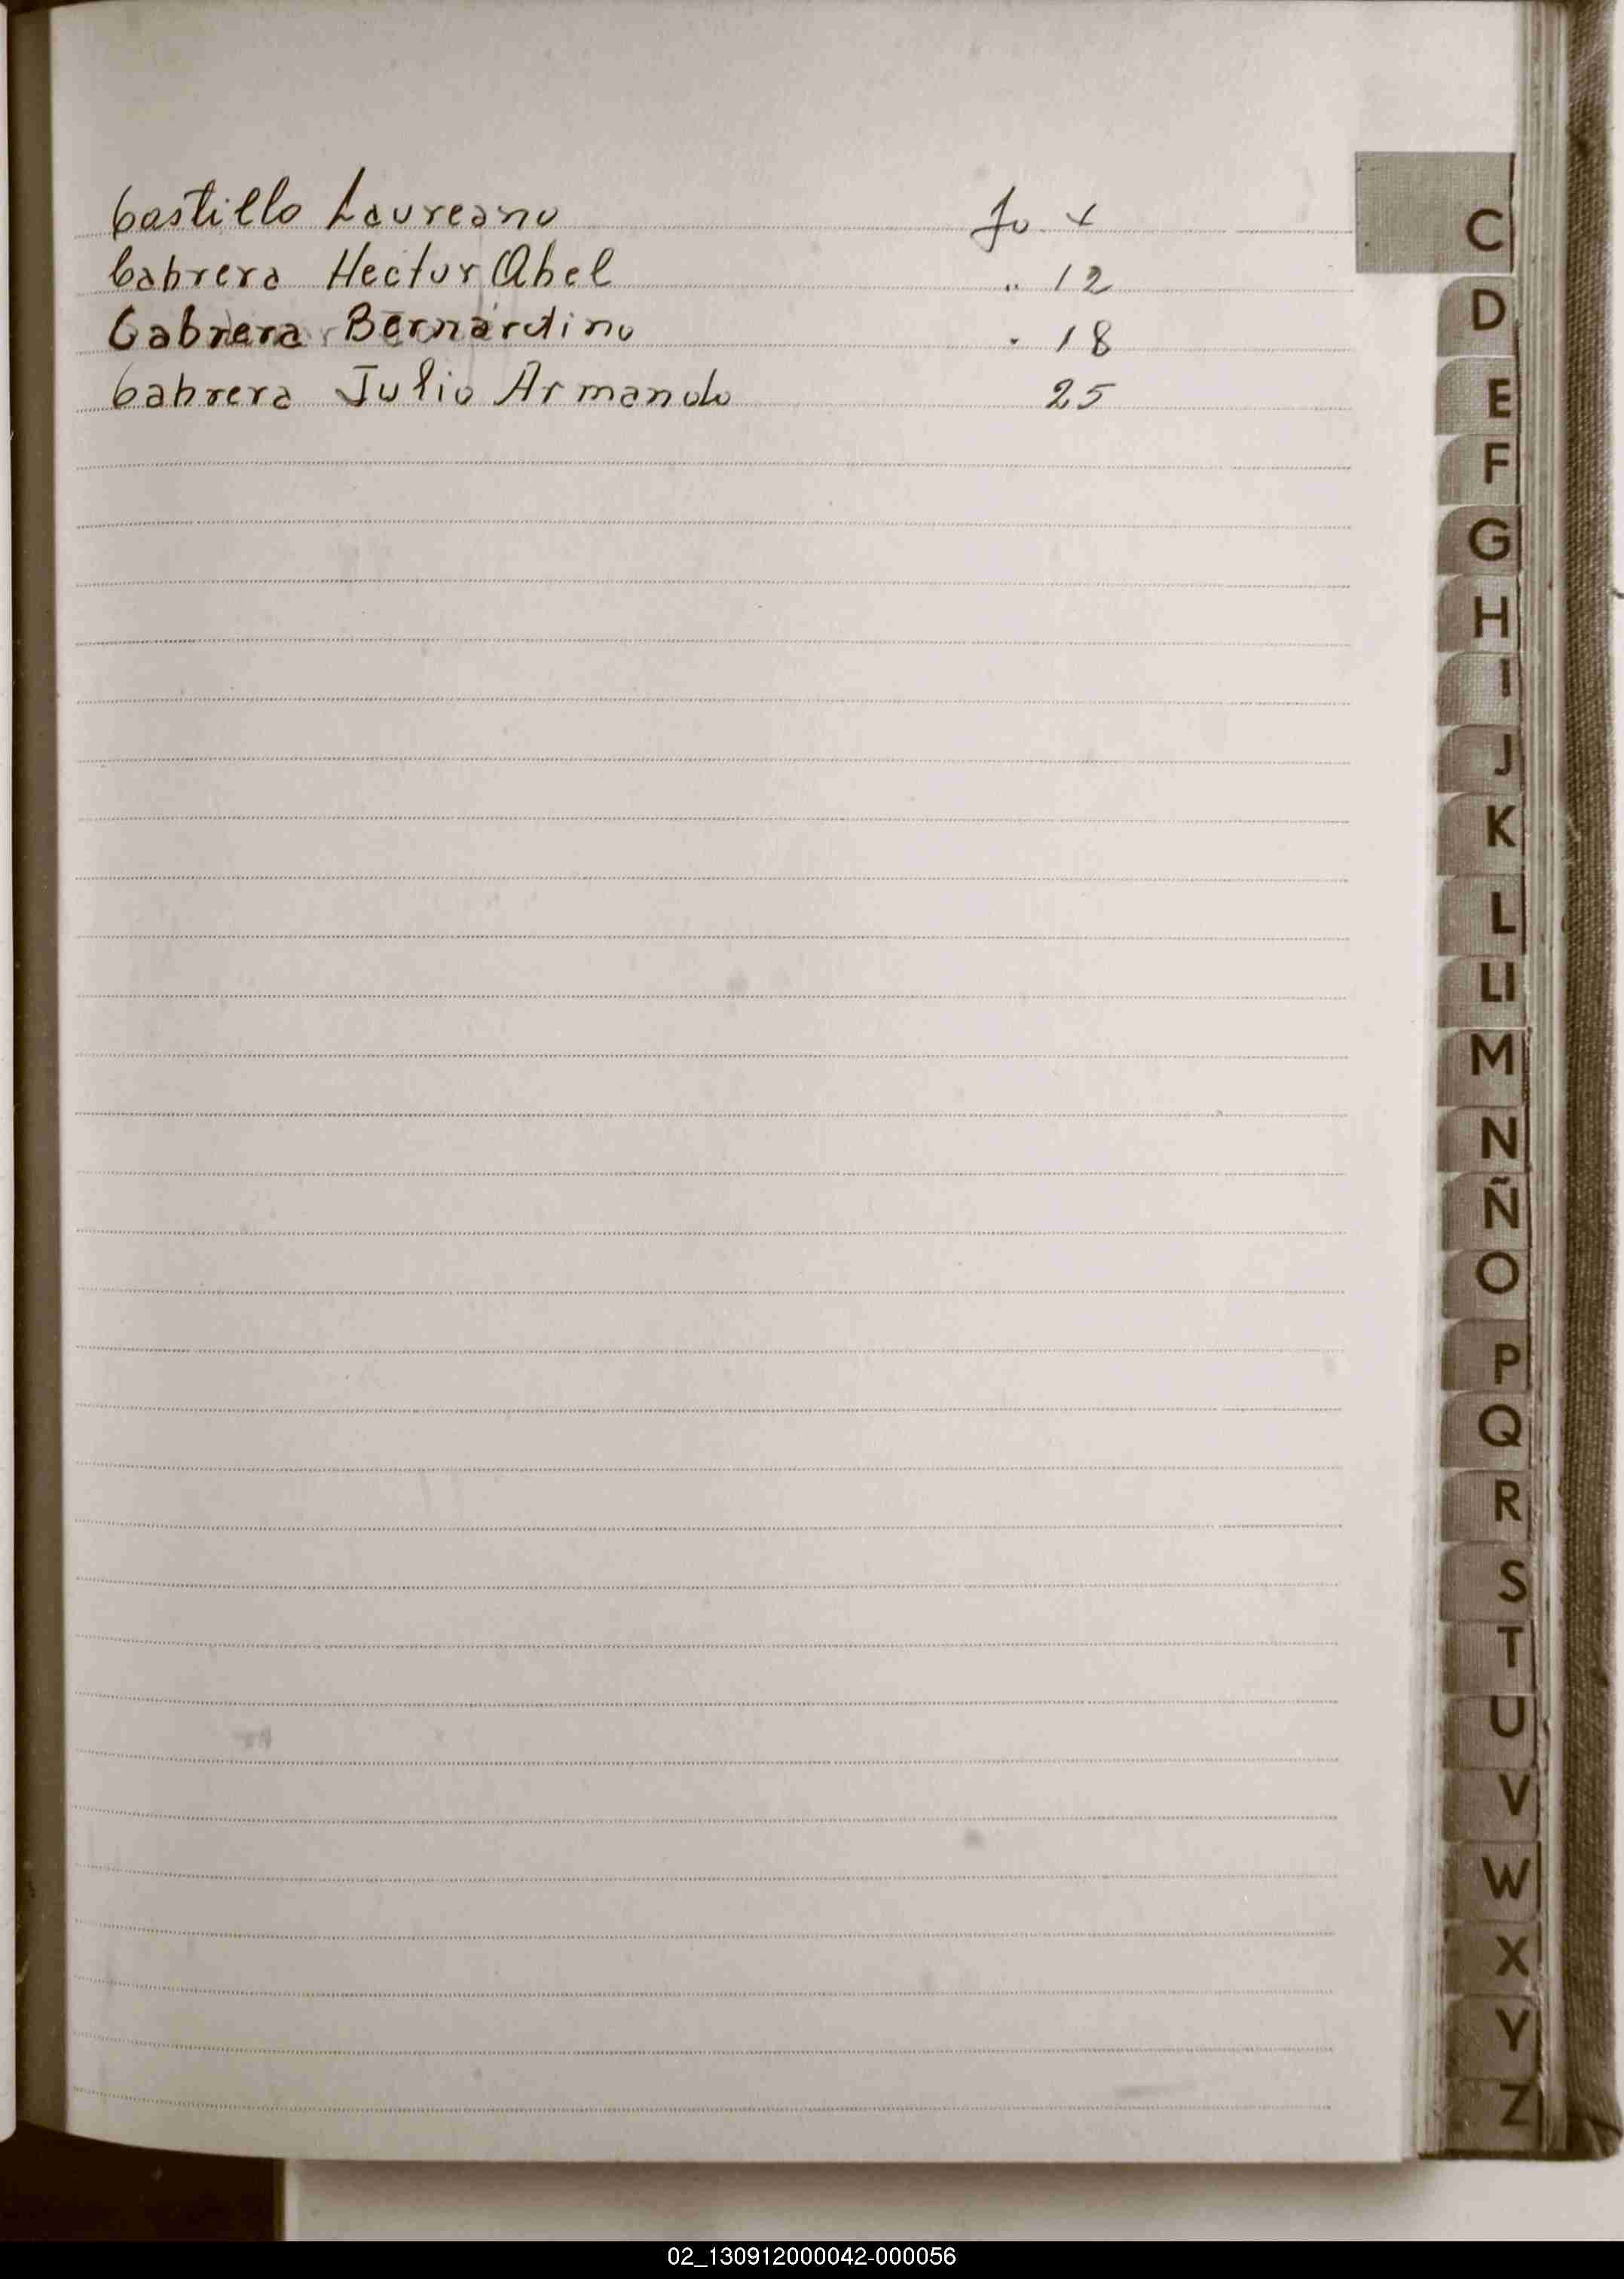 Castillo Laureano fo x
Cabrera Hector Abel " 12
Cabrera Bernardino " 18
Cabrera Julio Armando 25
C
D
E
F
G
H
I
J
K
L
Ll
M
N
Ñ
O
P
Q
R
S
T
U
V
W
X
Y
Z
02_130912000042-000056